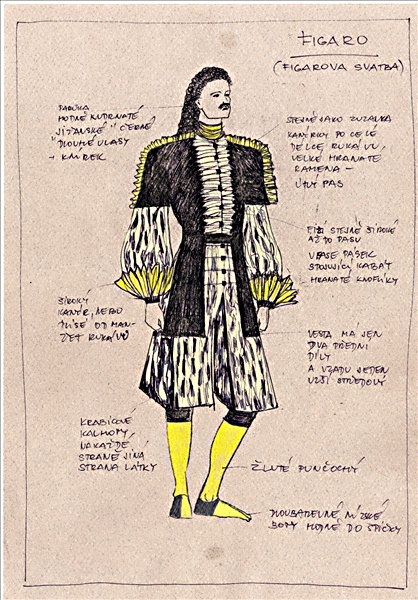 FIGARO
(FIGAROVA SVATBA)
PARUKA
HODNĚ KUDRNATÉ
"JIŽANSKÉ" ČERNÉ
DLOUHÉ VLASY
+ KNÍREK
STEJNĚ JAKO ZUZANKA
KANÝRKY PO CELÉ
DÉLCE RUKÁVU,
VELKÉ HRANATÉ
RAMENA -
ÚZKÝ PAS
STEJNĚ ŠIROKÉ
AŽ DO PASU
V PASE PÁSEK
STAHUJÍCÍ KABÁT
HRANATÉ KNOFLÍKY
ŠIROKÝ
KANÝR, NEBO
PLISÉ OD MAN-
ŽET RUKÁVŮ
VESTA MÁ JEN
DVA PŘEDNÍ
DÍLY
A VZADU JEDEN
UŽŠÍ STŘEDOVÝ
KRABICOVÉ
KALHOTY
NA KAŽDÉ
STRANĚ JINÁ
STRANA LÁTKY
ŽLUTÉ PUNČOCHY
NÍZKÉ
BOTY HODNĚ DO ŠPIČKY